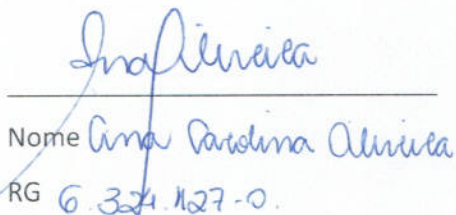 Ana Oliveira
Nome Ana Carolina Oliveira
RG 6.324.127-0.